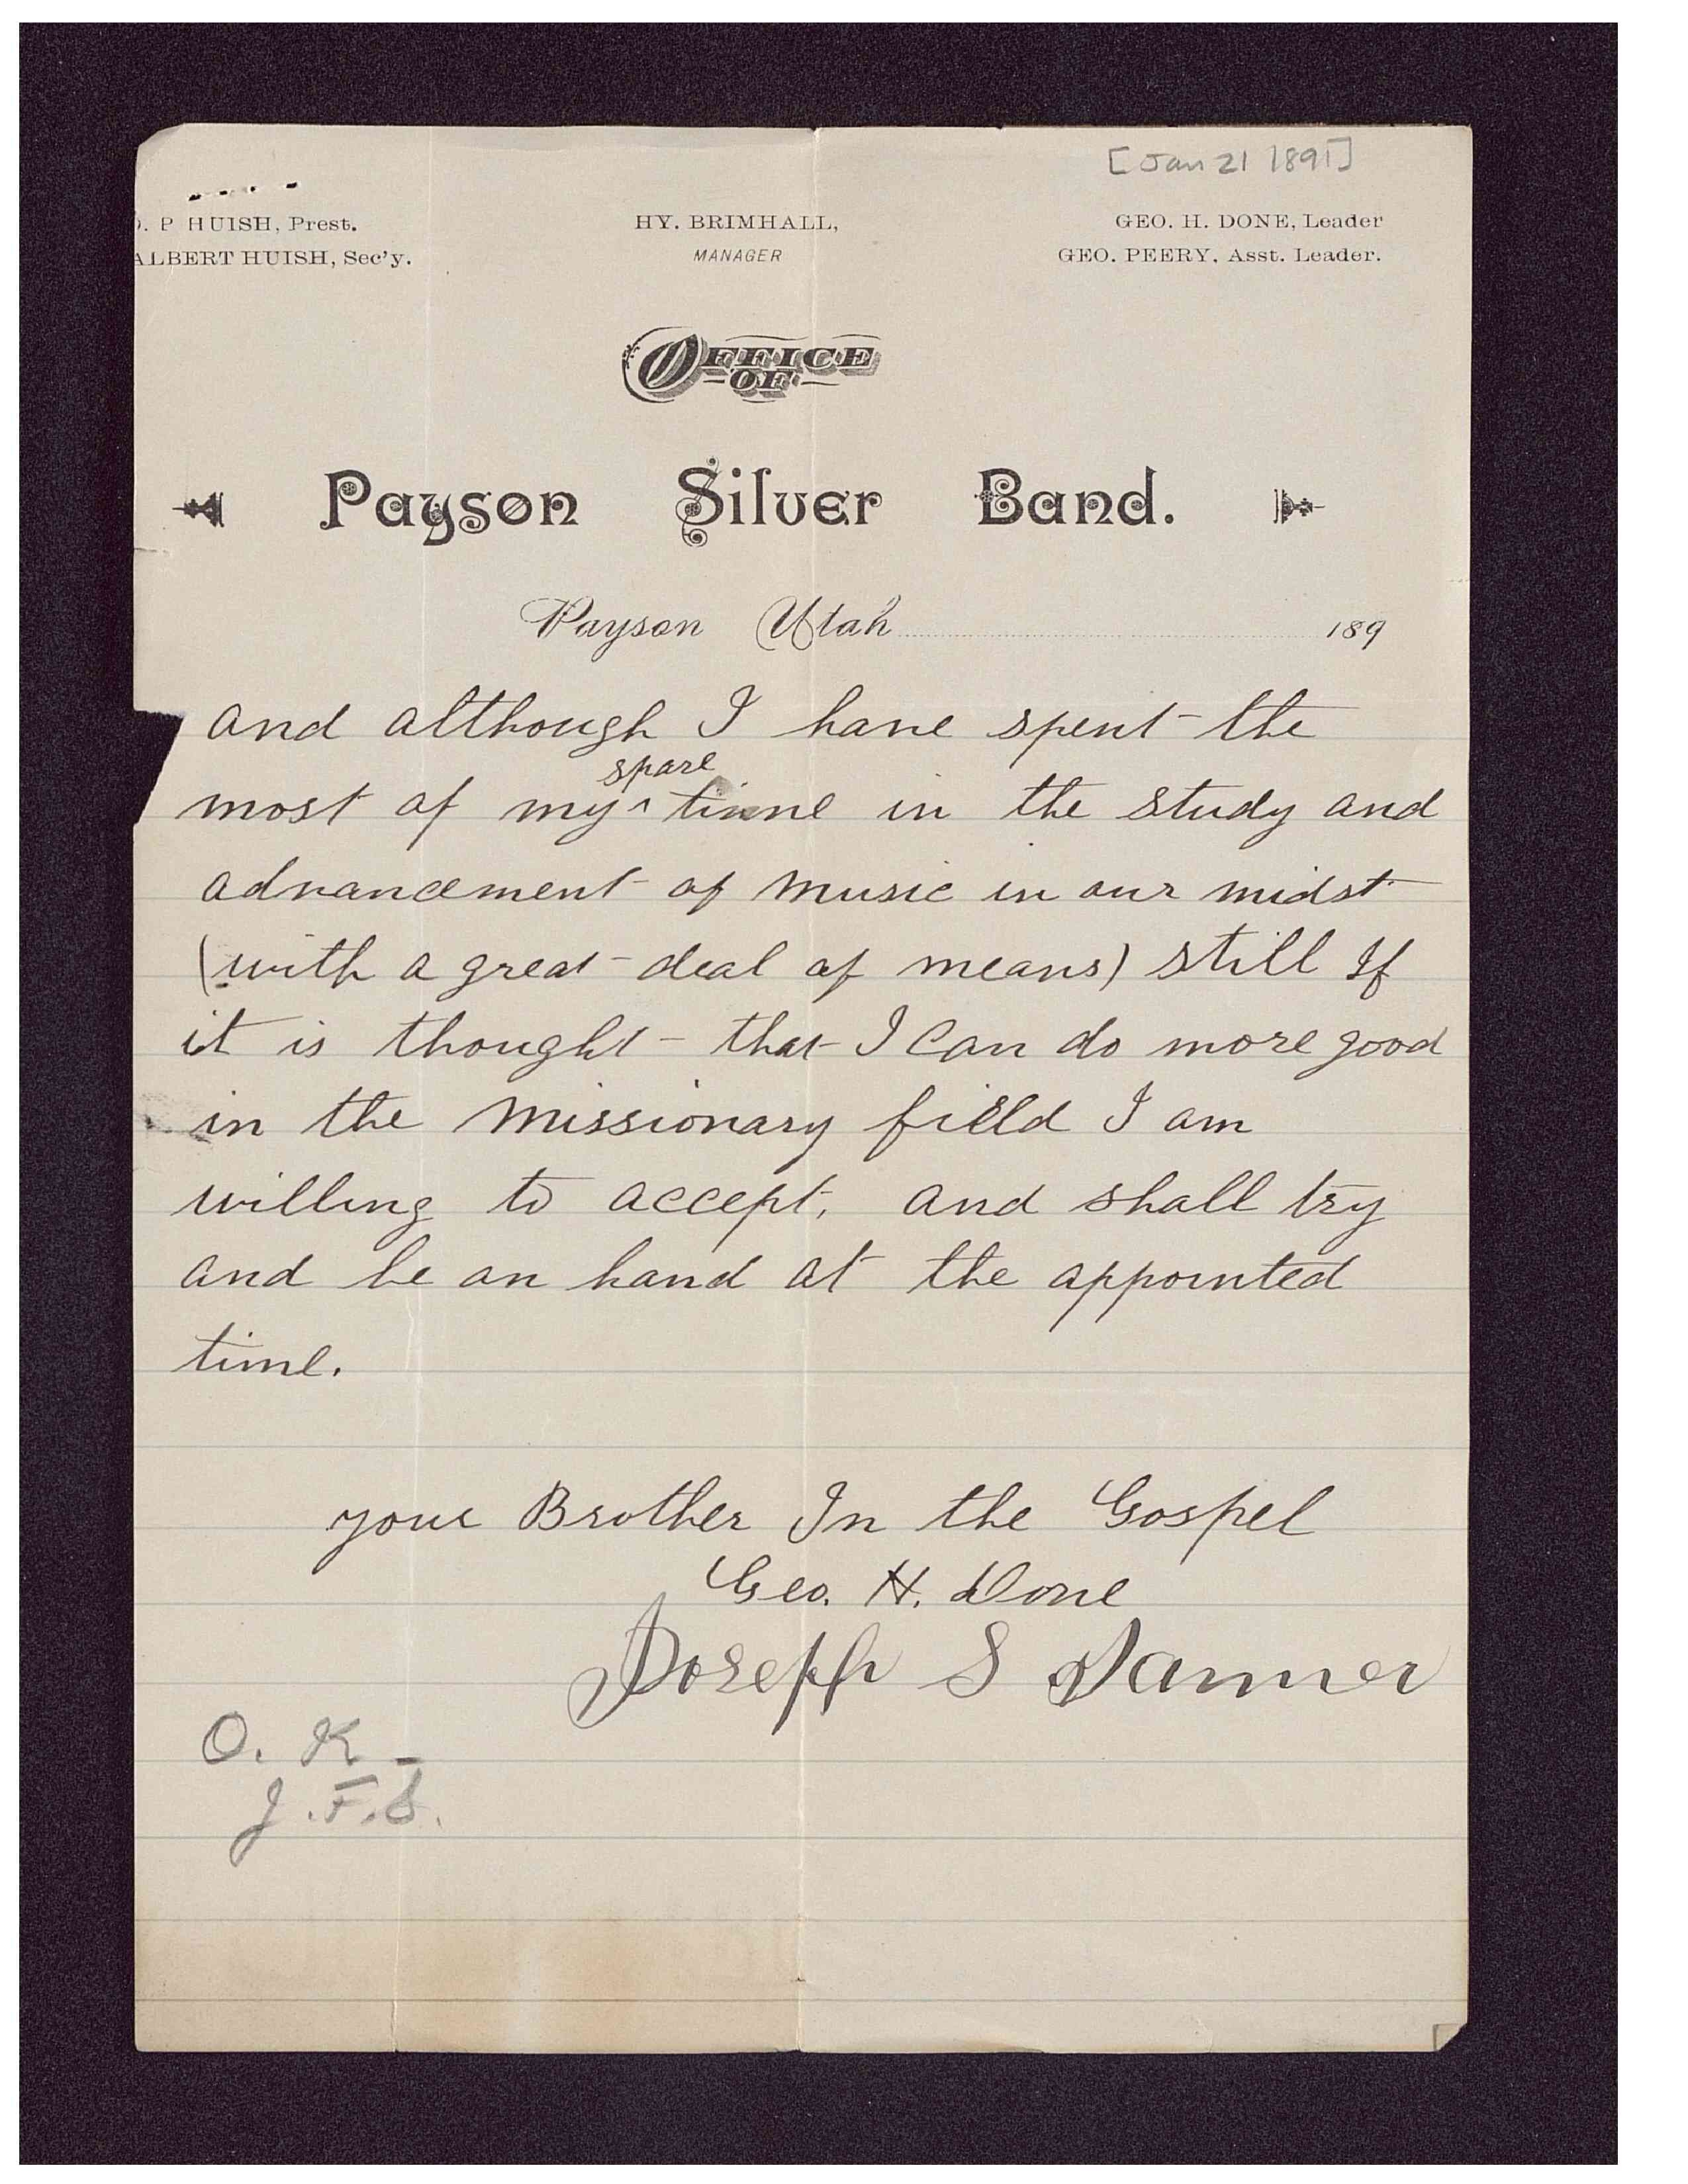 [Jan 21 1891]
. P HUISH, Prest. HY. BRIMHALL, GEO. H. DONE, Leader
ALBERT HUISH, Sec'y. MANAGER GEO. PEERY, Asst. Leader.
OFFICE
-OF-
Payson Silver Band.
Payson Utah 189
and although I have spent the
spare
most of my ^ time in the study and
advancement of music in our midst
(with a great deal of means) still If
it is thought that I can do more good
in the missionary field I am
willing to accept, and shall try
and be on hand at the appointed
time.
your Brother In the Gospel
Geo. H. Done
Joseph S Tanner
O. K -
J.F.S.